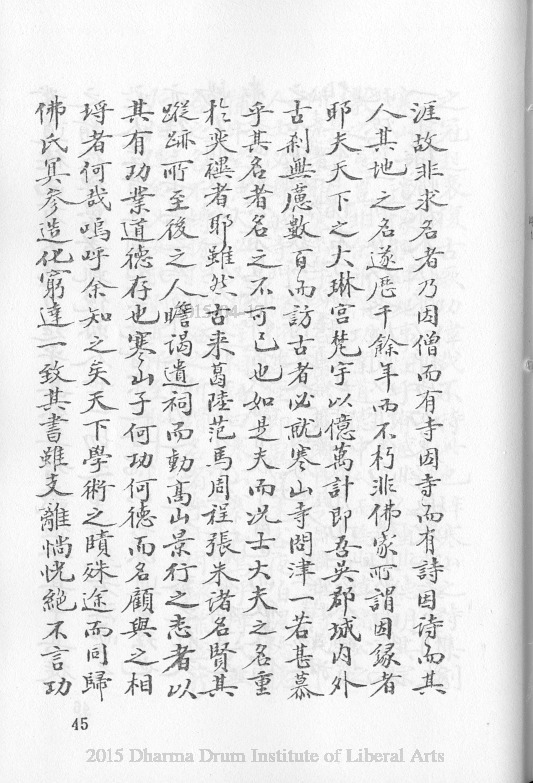 涯故非求名者乃因僧而有寺因寺而有詩因詩而其
人其地之名遂歷千餘年而不朽非佛家所謂因緣者
耶夫天下之大琳宫梵宇以億萬計即吾吳郡城内外
古刹無慮數百而訪古者必就寒山寺問津一若甚慕
乎其名者名之不可已也如是夫而况士大夫之名重
於奕禩者耶雖然古来葛陸范馬周程張朱諸名賢其
蹤跡所至後之人瞻謁遺祠而動髙山景行之志者以
其有功業道德存也寒山子何功何德而名顧與之相
埒者何哉嗚呼余知之矣天下學術之賾殊途而同歸
佛氏冥參造化窮達一致其書雖支離惝恍絶不言功
45
2015 Dharma Drum Institute of Liberal Arts